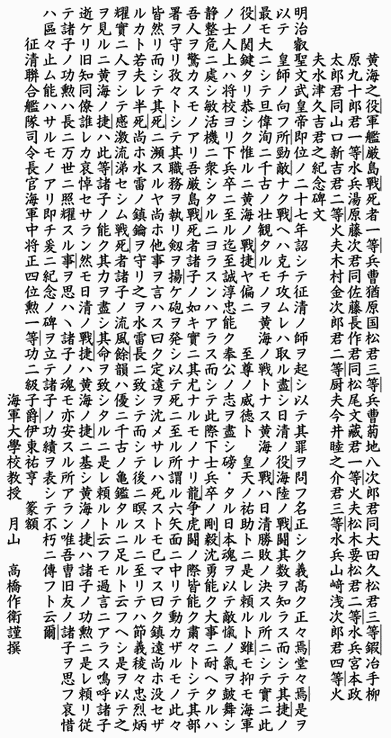 黄海之役軍艦厳島戦死者一等兵曹猶原国松君三等兵曹菊地八次郎君同大田久松君三等鍛冶手柳
原九十郎君一等水兵湯原藤次君同佐藤長作君同松尾文蔵君一等火夫松木要松君二等水兵宮本政
太郎君同山口新吉君二等火夫木村金次郎君二等厨夫今井睦之介君三等水兵山﨑浅次郎君四等火
夫水津久吉君之紀念碑文
明治叡聖文武皇帝即位ノ二十七年詔シテ征清ノ師ヲ起シ以テ其罪ヲ問フ名正シク義高ク正々焉堂々焉是ヲ
以テ　皇師ノ向フ所勁敵ナク戦ヘハ克チ攻ムレハ取ル盡シ日清ノ役海陸ノ戦闘其数ヲ知ラス而シテ其捷ノ
最モ大ニシテ旦偉洵ニ千古ノ壮観タルモノヲ黄海ノ戦トナス黄海ノ戦ハ日清勝敗ノ決スル所ニシテ實ニ此
役ノ関鍵タリ恭シク惟ルニ黄海ノ戦捷ヤ偏ニ　至尊ノ威徳ト　皇天ノ祐助トニ是レ頼ルト雖モ抑モ海軍
ノ士人上ハ将校ヨリ下兵卒ニ至ル迄至誠淳忠能ク奉公ノ志ヲ盡シ磅・タル日本魂ヲ以テ敵愾ノ氣ヲ皷舞シ
静整危ニ處シ敏活機ニ衆シタルニヨラスンハアラス而シテ此際下士兵卒ノ剛毅沈勇能ク大事ニ耐ヘタルハ
吾人ヲ驚カスモノアリ吾厳島戦死者諸子ノ如キ實ニ其尤ナルモノナリ龍争虎闘ノ際皆能ク肅々トシテ其部
署ヲ守リ孜々トシテ其職務ヲ執リ釼ヲ揚ケ砲ヲ発シ以テ死ニ至ル所謂ル六矢面ニ中リテ動カザルモノ此々
皆然リ而シテ其死ニ瀕スルヤ尚ホ他事ヲ言ハス曰ク定遠ヲ沈メサレハ死ストモ已マス曰ク鎮遠尚ホ没セザ
ルカト若夫レ半死尚ホ水雷ノ鎮鑰ヲ守リ之ヲ水雷長ニ致シテ而シテ後ニ瞑スルニ至リテハ節義稜々忠烈炳
耀實ニ人ヲシテ感激流涕セシム戦死者諸子ノ流風餘韻ハ優ニ千古ノ亀鑑タルニ足ルト云フヘシ是ヲ以テ之
ヲ見ルニ黄海ノ捷ハ此等諸子ノ能ク其力ヲ盡シ其命ヲ致シタルニ是レ頼ルト云フモ過言ニアラス鳴呼諸子
逝ケリ旧知同僚誰レカ哀悼セサラン然モ日清ノ戦捷ハ黄海ノ捷ニ基シ黄海ノ捷ハ諸子ノ功勲ニ是レ頼リ従
テ諸子ノ功勲ハ長ニ万世ニ照耀スル事ヲ思ハヽ諸子ノ魂モ亦安スル所アラン唯吾曹旧友ノ諸子ヲ思フ哀惜
ハ區々止ム能ハサルモノアリ即チ爰ニ紀念ノ碑ヲ立テ諸子ノ功績ヲ表シテ不朽ニ傳フト云爾
征清聯合艦隊司令長官海軍中将正四位勲一等功二級子爵伊東祐亨　篆額
海軍大學校教授　月山　高橋作衛謹撰